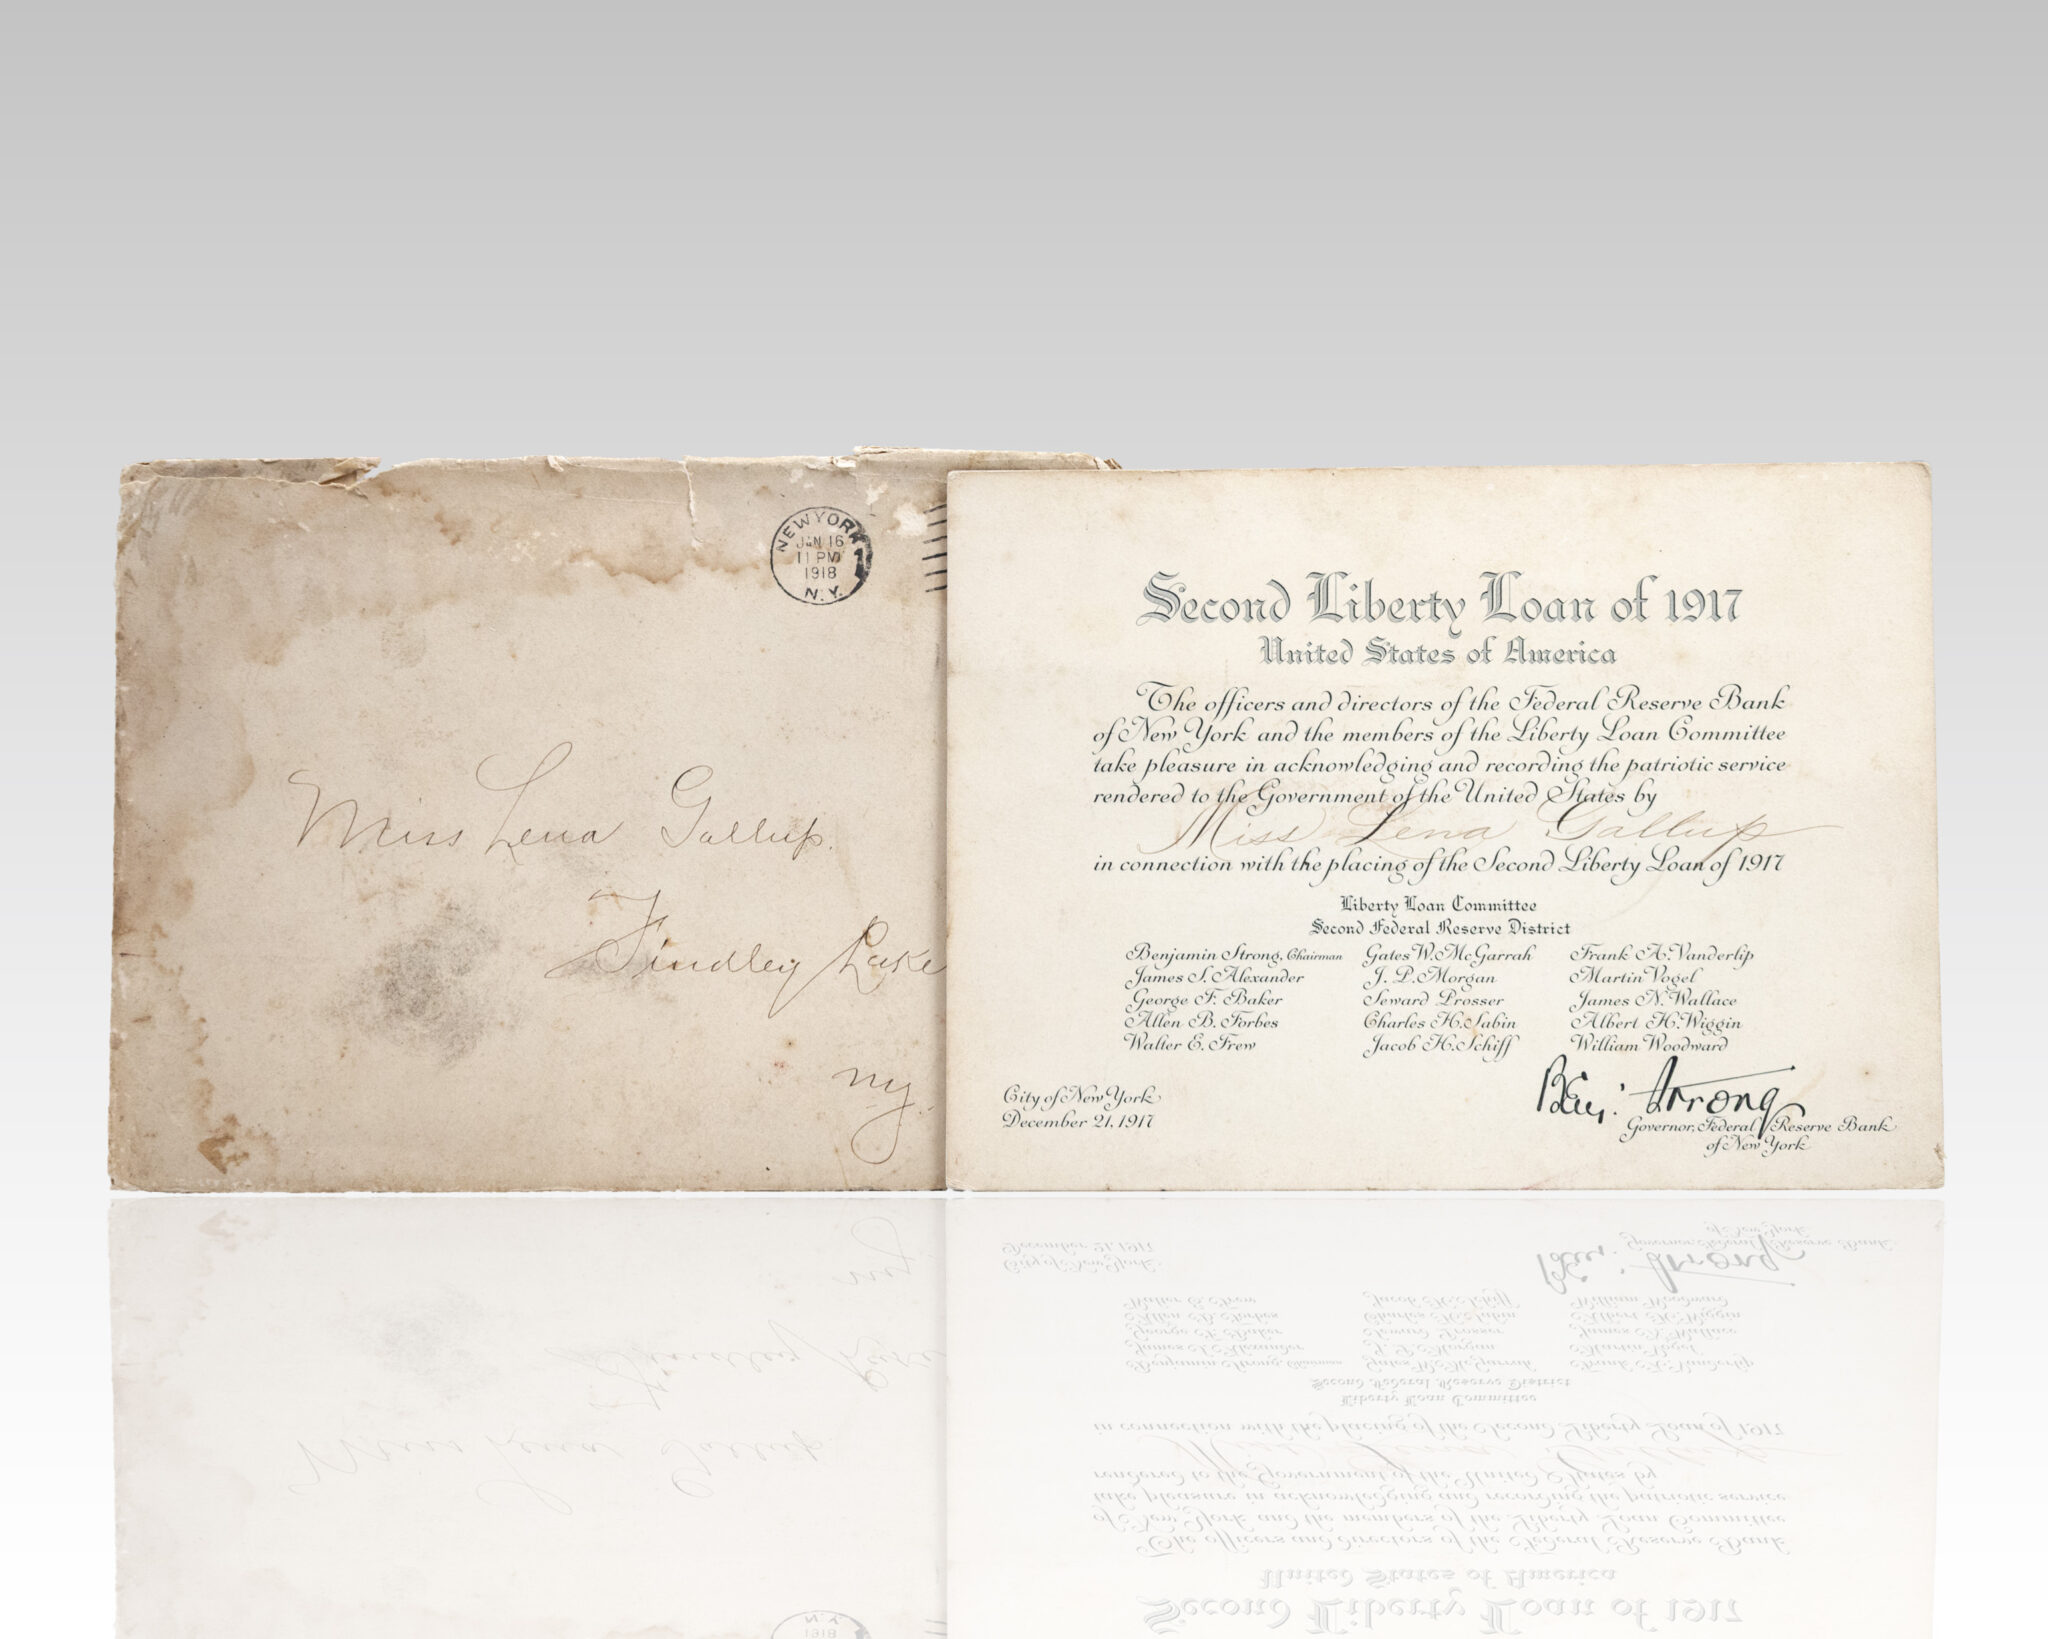 NEW YORK
JAN 16
11 PM
1918
N.Y.
1
Miss Lena Gallup.
Findley Lake
ny.
Second Liberty Loan of 1917
United States of America
The officers and directors of the Federal Reserve Bank
of New York and the members of the Liberty Loan Committee
take pleasure in acknowledging and recording the patriotic service
rendered to the Government of the United States by
Miss Lena Gallup
in connection with the placing of the Second Liberty Loan of 1917
Liberty Loan Committee
Second Federal Reserve District
Benjamin Strong, Chairman Gates W. McGarrah Frank A. Vanderlip
James S. Alexander J. P. Morgan Martin Vogel
George F. Baker Seward Prosser James N. Wallace
Allen B. Forbes Charles H. Sabin Albert H. Wiggin
Walter E. Frew Jacob H. Schiff William Woodward
Benj. Strong
Governor, Federal Reserve Bank
of New York
City of New York
December 21, 1917